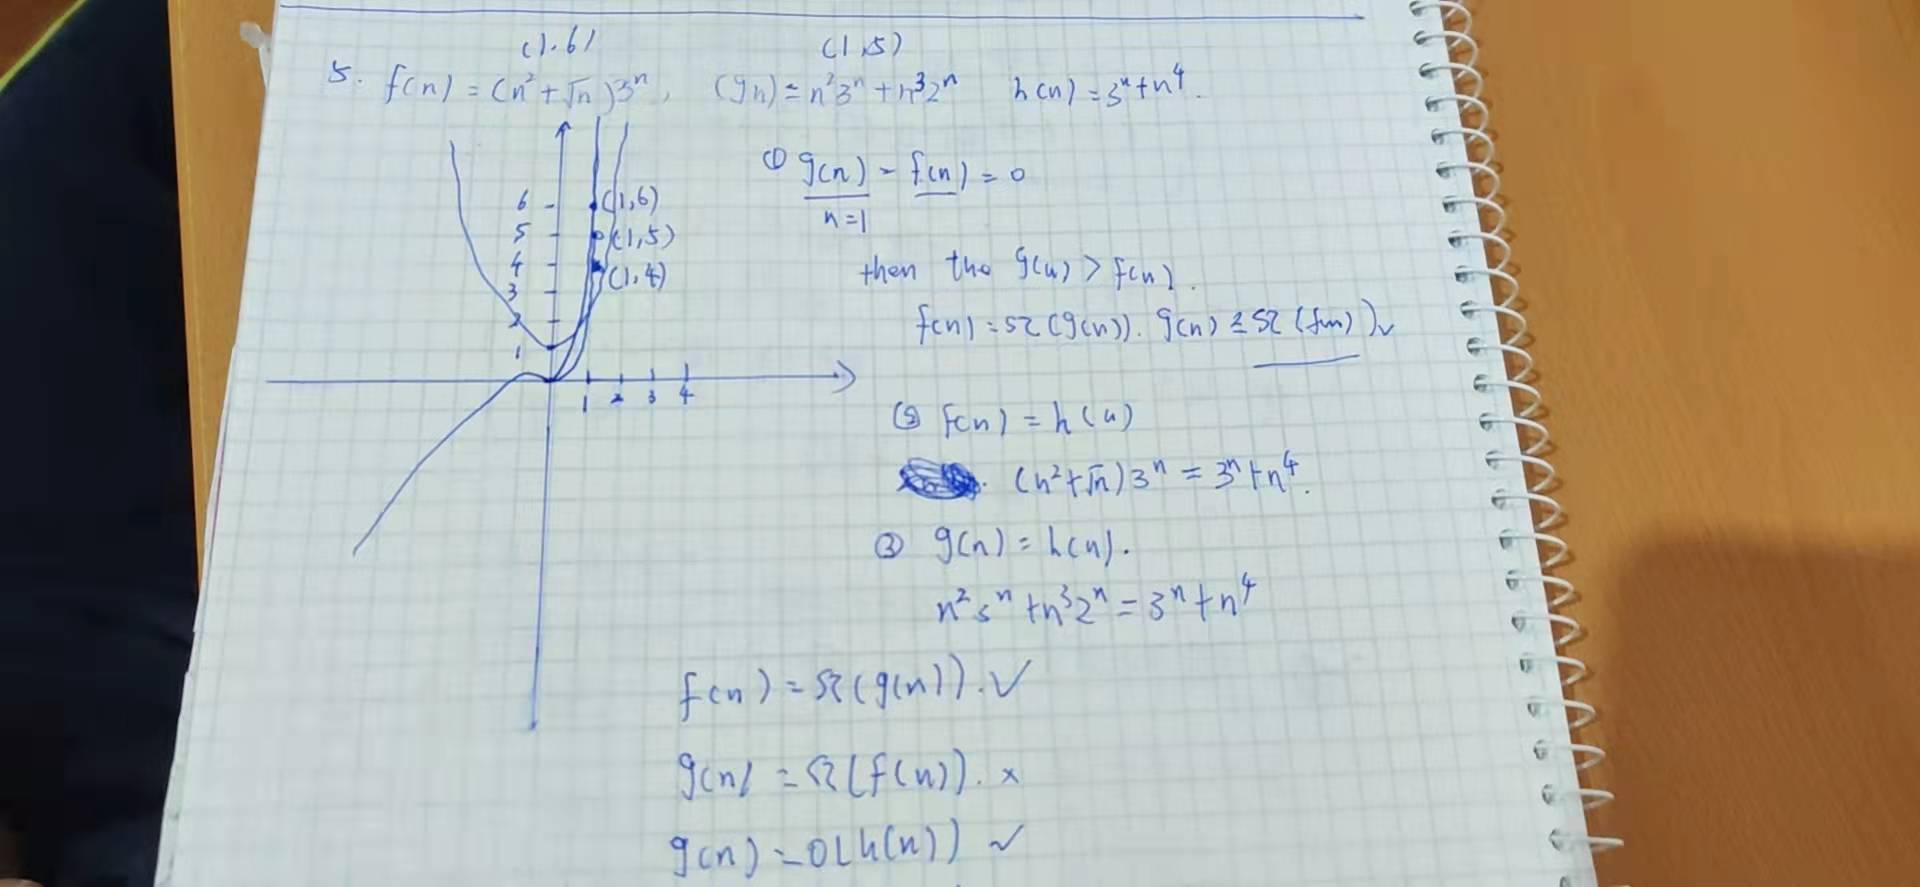 (1.6) (1,5)
5. f(n) = (n²+√n)3ⁿ, (gn) = n²3ⁿ+n³2ⁿ h(n) = 3ⁿ+n⁴.
① g(n) - f(n) = 0
n=1
6 (1,6)
5 (1,5)
4 (1,4)
3
2
1
1 2 3 4
then the g(n) > f(n).
f(n) = Ω(g(n)). g(n) ≠ Ω(f(n)) ✓
② f(n) = h(n)
(n²+√n)3ⁿ = 3ⁿ+n⁴.
③ g(n) = h(n).
n²3ⁿ+n³2ⁿ = 3ⁿ+n⁴
f(n) = Ω(g(n)). ✓
g(n) = Ω(f(n)). ×
g(n) = O(h(n)) ✓